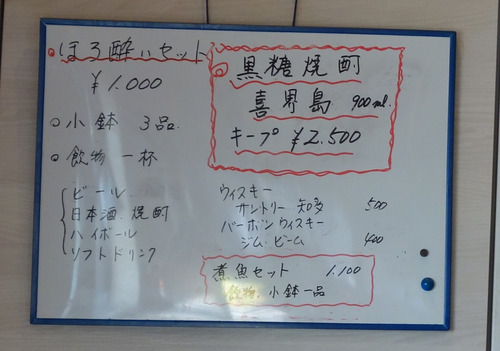 ほろ酔いセット
¥1.000
小鉢 3品.
飲物 一杯
ビール
日本酒.焼酎
ハイボール
ソフトドリンク
黒糖焼酎
喜界島 900ml.
キープ ¥2.500
ウィスキー
サントリー 知多 500
バーボンウィスキー
ジム.ビーム 400
煮魚セット 1.100
飲物.小鉢一品